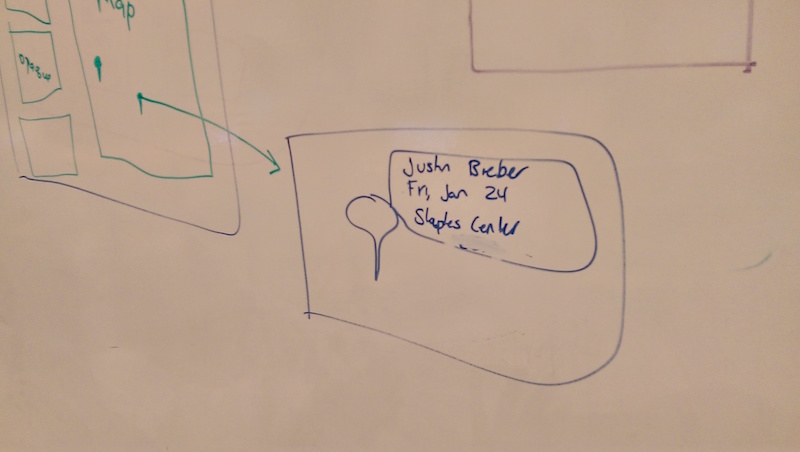 Map
Justin Bieber
Fri, Jan 24
Staples Center